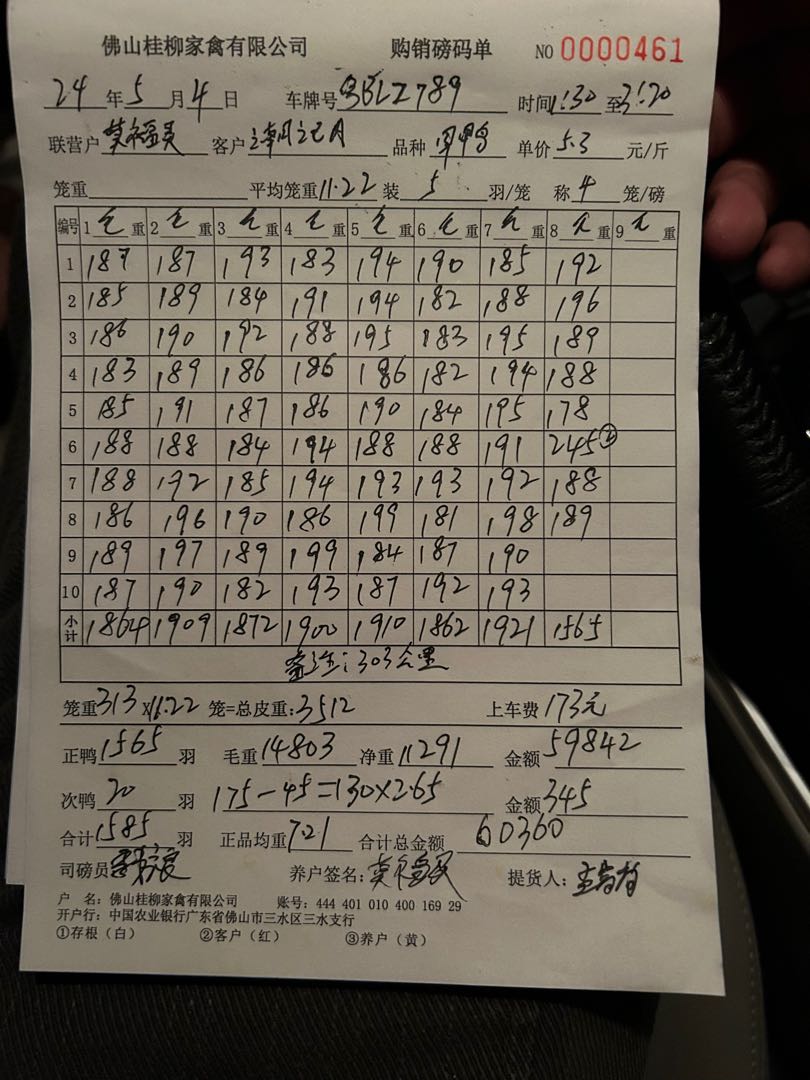 佛山桂柳家禽有限公司 购销磅码单 NO 0000461
24 年 5 月 4 日 车牌号 粤BLZ789 时间 1:30 至 3:20
联营户 客户 品种 单价 5.3 元/斤
笼重 平均笼重 11.22 装 5 羽/笼 称 4 笼/磅
编号 1 毛 重 2 毛 重 3 毛 重 4 毛 重 5 毛 重 6 毛 重 7 毛 重 8 毛 重 9 毛 重
1 187 187 193 183 194 190 185 192
2 185 189 184 191 194 182 188 196
3 186 190 192 188 195 183 195 189
4 183 189 186 186 186 182 194 188
5 185 191 187 186 190 184 195 178
6 188 188 184 194 188 188 191 245
7 188 192 185 194 193 193 192 188
8 186 196 190 186 199 181 198 189
9 189 197 189 199 184 187 190
10 187 190 182 193 187 192 193
小计 1864 1909 1872 1900 1910 1862 1921 1565
备注:303公里
笼重 313 x11.22 笼=总皮重:3512 上车费 173元
正鸭 1565 羽 毛重 14803 净重 11291 金额 59842
次鸭 20 羽 175-45=130×2.65 金额 345
合计 1585 羽 正品均重 7.21 合计总金额 60360
司磅员 养户签名: 提货人:
户 名:佛山桂柳家禽有限公司 账号:444 401 010 400 169 29
开户行:中国农业银行广东省佛山市三水区三水支行
①存根(白) ②客户(红) ③养户(黄)